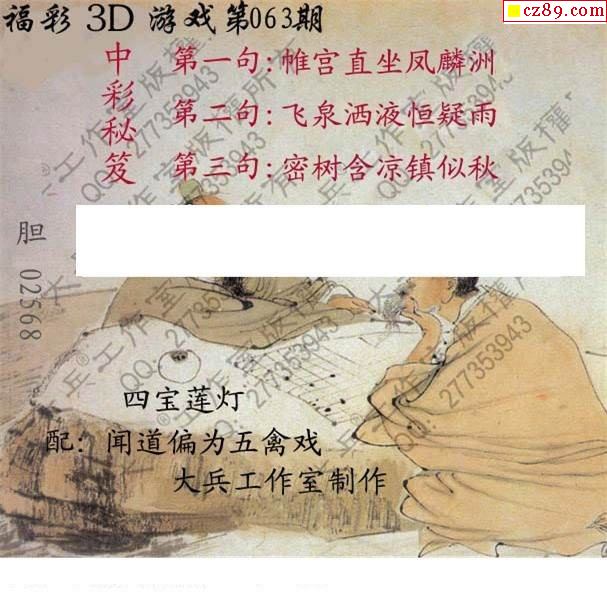 cz89.com
福彩 3D 游戏第063期
中彩秘笈
第一句:帷宫直坐凤麟洲
第二句:飞泉洒液恒疑雨
第三句:密树含凉镇似秋
胆 02568
四宝莲灯
配:闻道偏为五禽戏
大兵工作室制作
大兵®工作室版权所有
QQ:277353943